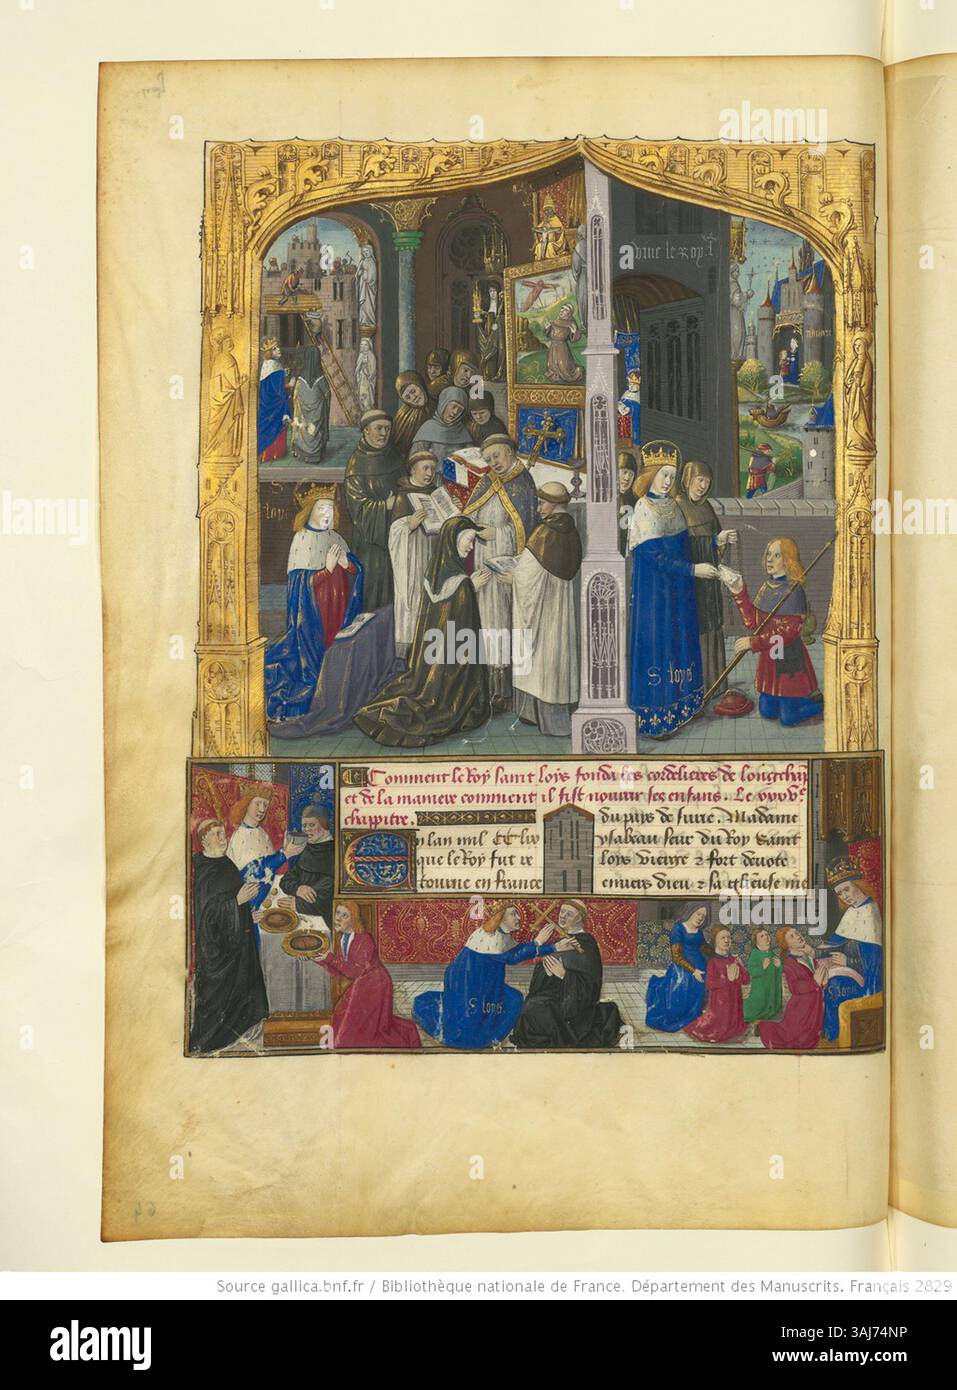 vive le Roy
S loys
S loys
Comment le Roy saint Loys fonda les cordelieres de longchāp
et de la maniere comment il fist nourrir ses enfans. Le
chapitre.
En lan mil CC
que le Roy fut re
tourne en france
du pays de surie. Madame
ysabeau seur du Roy saint
loys vierge & fort devote
envers dieu & sa glorieuse
S loys.
S loys
64
Source gallica.bnf.fr / Bibliothèque nationale de France. Département des Manuscrits. Français 2829
alamy
Image ID: 3AJ74NP
www.alamy.com